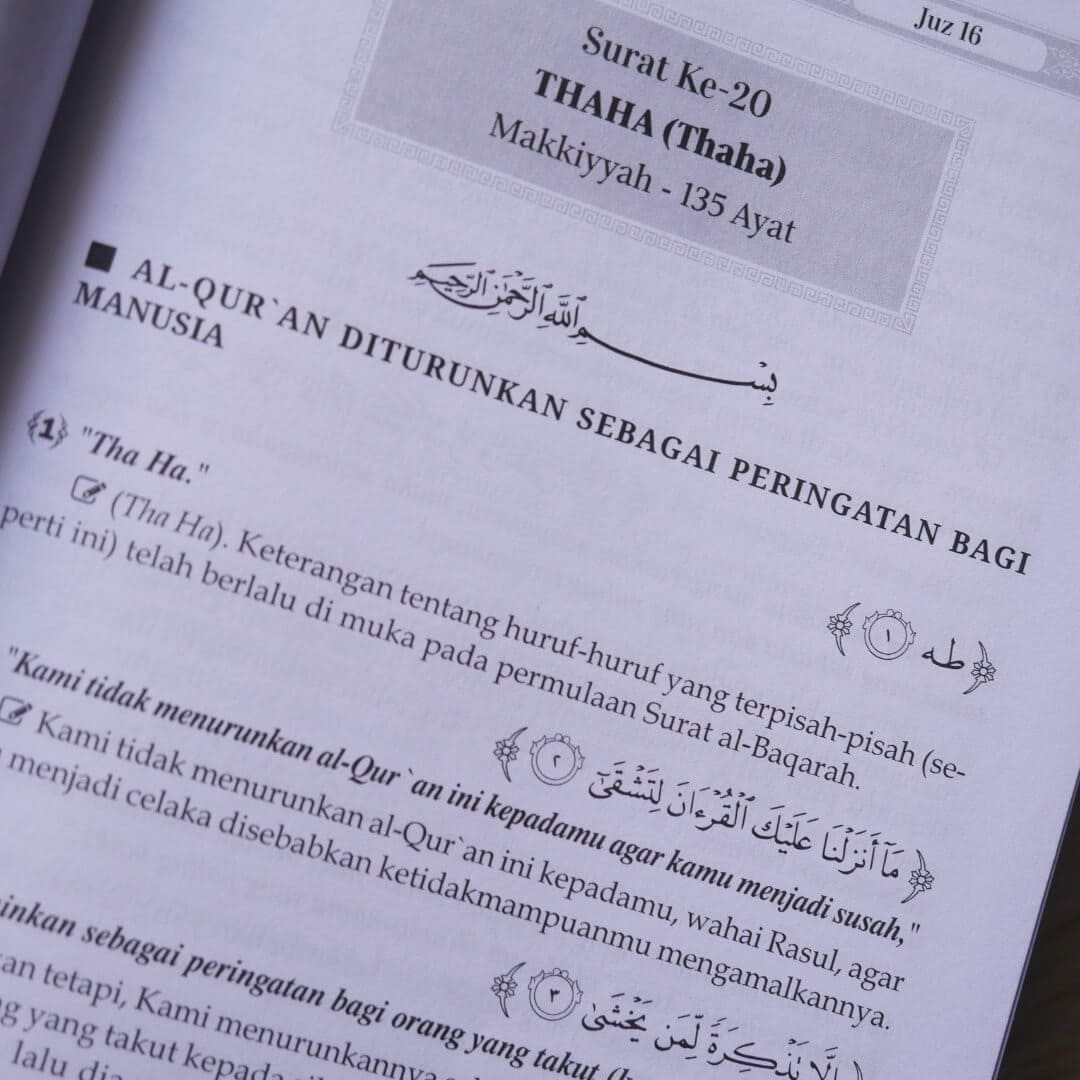 Juz 16
Surat Ke-20
THAHA (Thaha)
Makkiyyah - 135 Ayat
بِسْمِ اللَّهِ الرَّحْمَٰنِ الرَّحِيمِ
■ AL-QUR`AN DITURUNKAN SEBAGAI PERINGATAN BAGI
MANUSIA
﴿طه ١﴾
{1} "Tha Ha."
(Tha Ha). Keterangan tentang huruf-huruf yang terpisah-pisah (se-
perti ini) telah berlalu di muka pada permulaan Surat al-Baqarah.
﴿مَآ أَنزَلْنَا عَلَيْكَ ٱلْقُرْءَانَ لِتَشْقَىٰٓ ٢﴾
"Kami tidak menurunkan al-Qur`an ini kepadamu agar kamu menjadi susah,"
Kami tidak menurunkan al-Qur`an ini kepadamu, wahai Rasul, agar
menjadi celaka disebabkan ketidakmampuanmu mengamalkannya.
إِلَّا تَذْكِرَةً لِّمَن يَخْشَىٰ ٣﴾
inkan sebagai peringatan bagi orang yang takut
an tetapi, Kami menurunkannya
g yang takut kepada
lalu dia